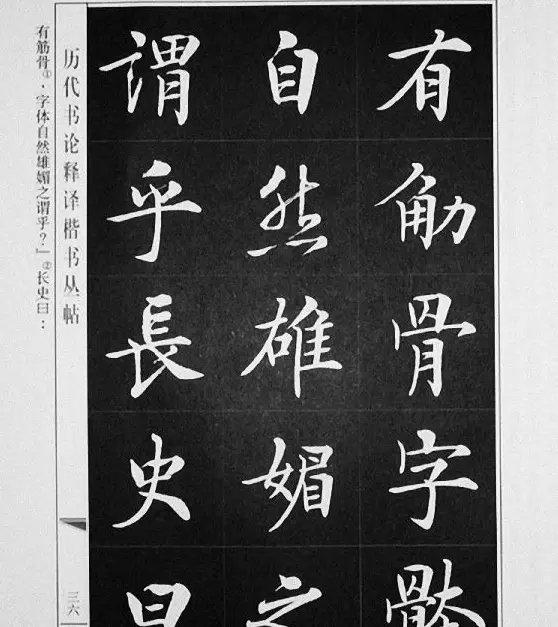 有觔骨字骵
自然雄媚之
謂乎長史曰
历代书论释译楷书丛帖
三六
有筋骨①，字体自然雄媚之谓乎？」②长史曰：